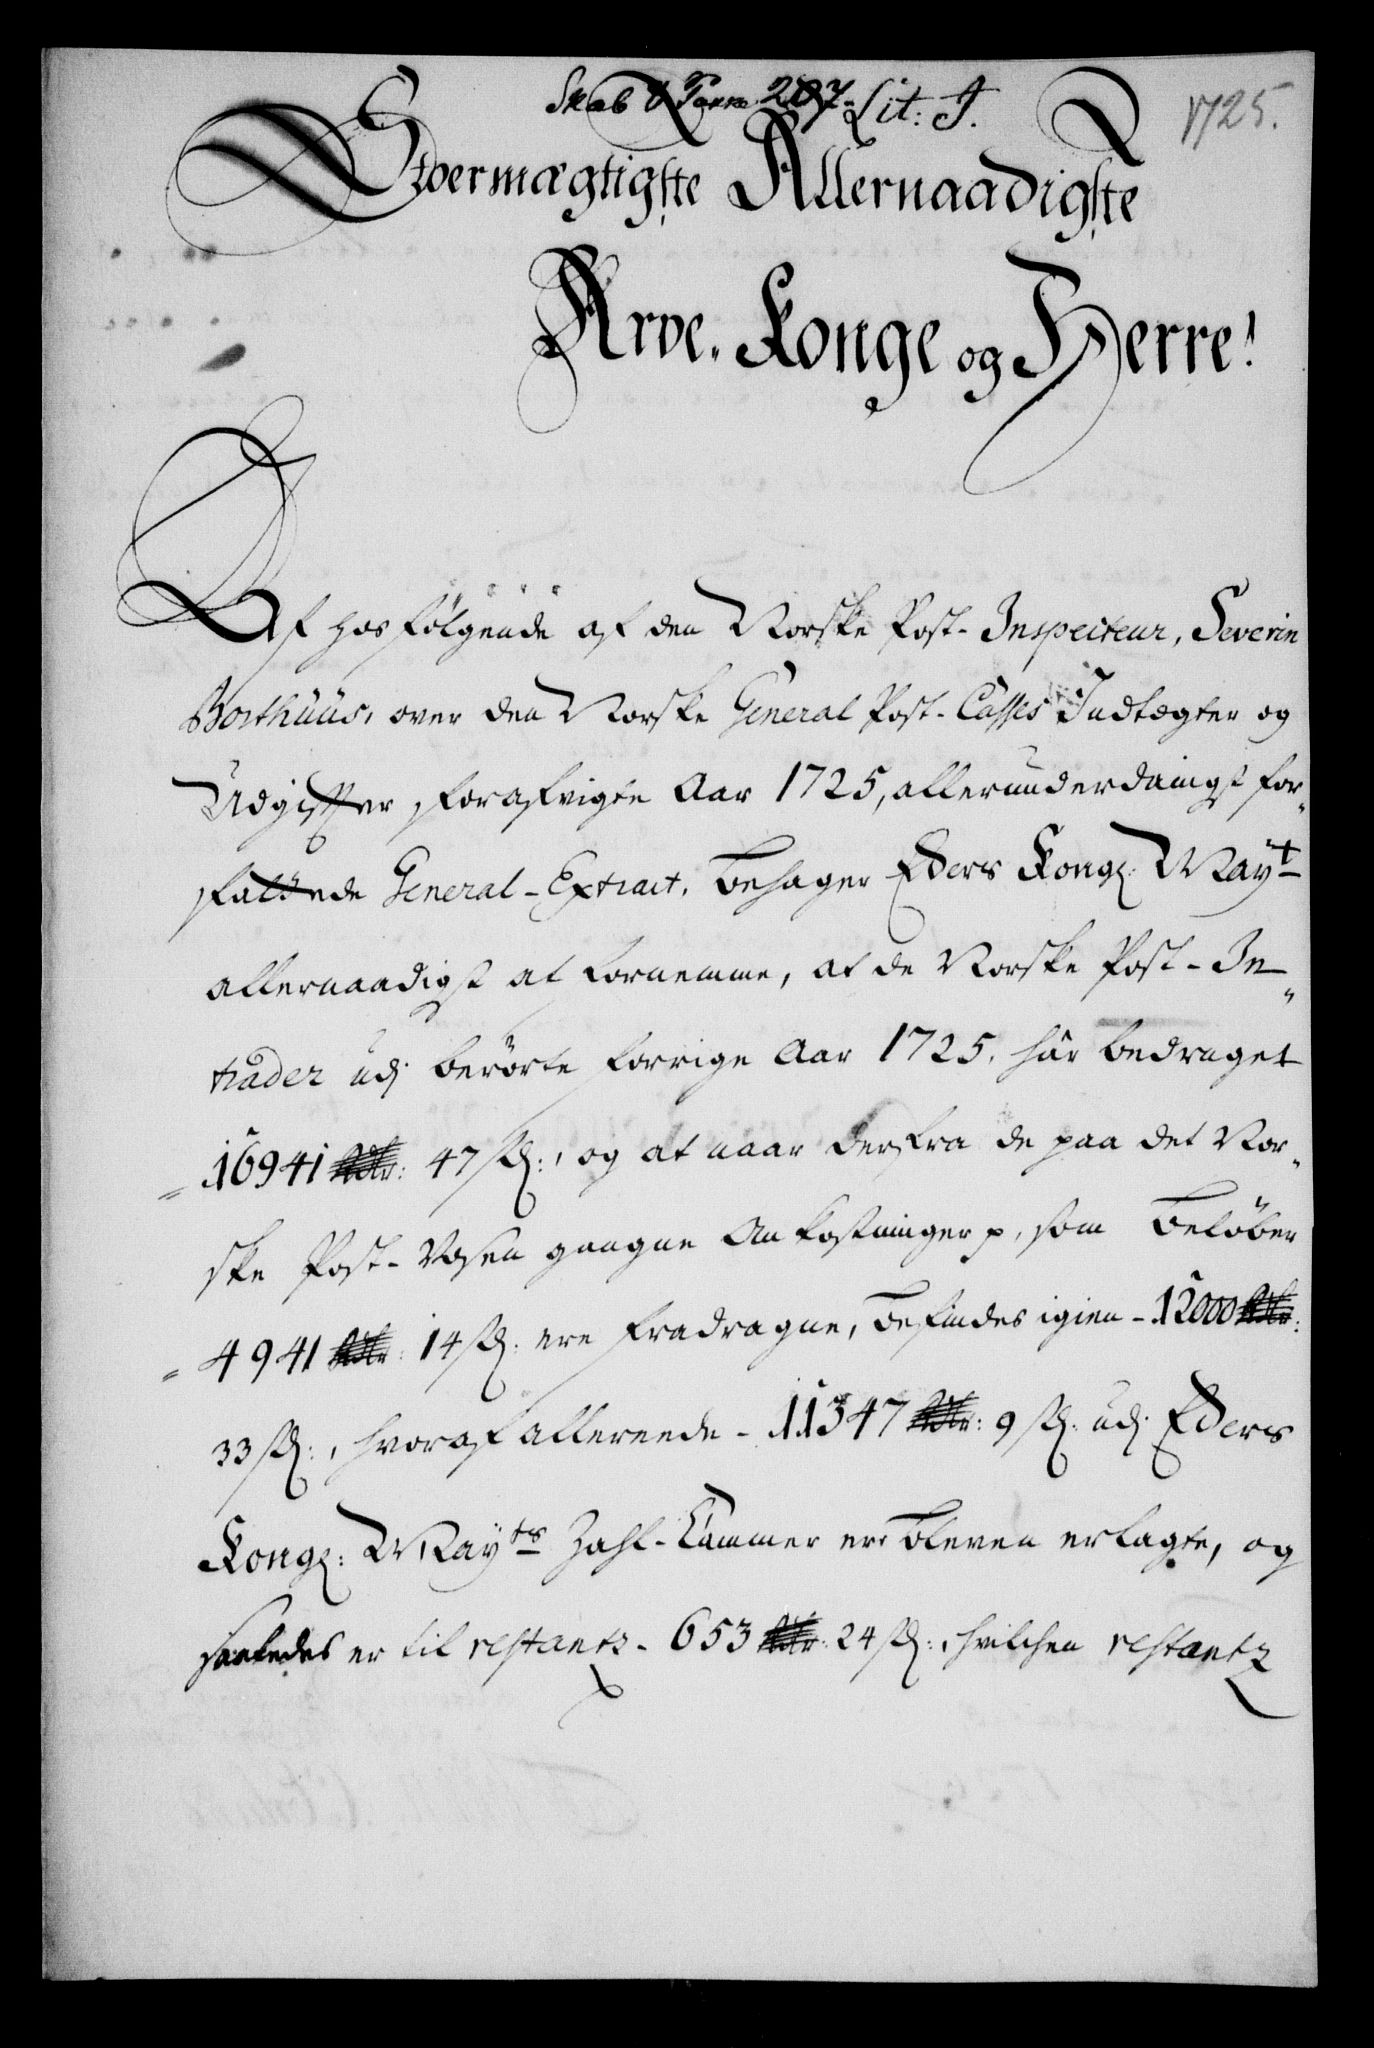 Skab 8 207. Lit: J.
1725.
Stoermægtigste Allernaadigste
Arve. Konge og Herre!
Af hosfølgende af den Norske Post-Inspecteur, Severin
Borthuus, over den Norske General Post-Casses Indtægter og
Udgifter forafvigte Aar 1725, allerunderdanigst for„
fattede General-Extract, behager Eders Kongl: Mayt
allernaadigst at fornemme, at de Norske Post-In„
trader udj berørte forrige Aar 1725, har bedraget
16941 Rdlr: 47 sk:, og at naar derfra de paa det Nor„
ske Post-Væsen gangne Ankostninger p, som beløber
4941 Rdlr: 14 sk: ere fradragne, befindes igien - 12000 Rdlr:
33 sk:, hvoraf allereede - 11347 Rdlr: 9 sk: udj Eders
Kongl: Mayts Zahl-Cammer ere bleven erlagte, og
saaledes er til restantz - 653 Rdlr: 24 sk:, hvilchen restantz